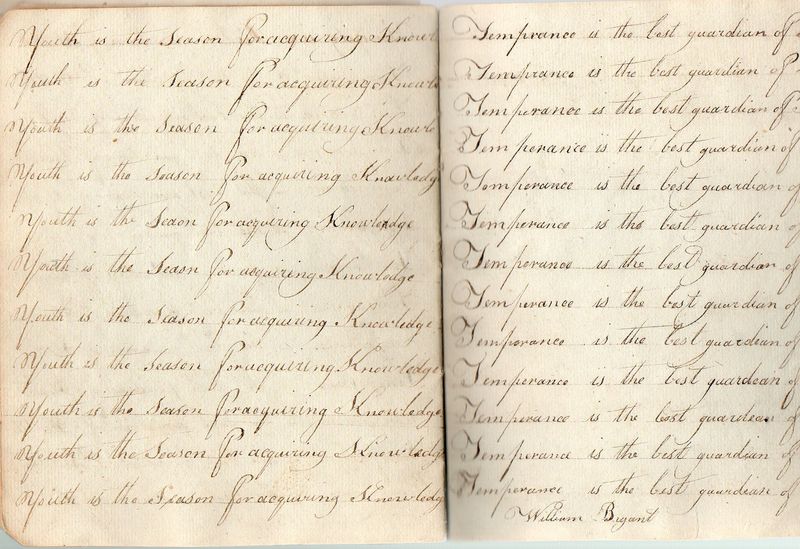 Youth is the Season for acquiring Knowl
Youth is the Season for acquiring Knowle
Youth is the Season for acquiring Knowle
Youth is the Season for acquiring Knowledg
Youth is the Seaon for acqiring Knowledge
Youth is the Seasn for acquiring Knowledge
Youth is the Season for acquiring Knowledge
Youth is the Season for acquiring Knowledge
Youth is the Season for acquiring Knowledge
Youth is the Season for acquiring Knowledge
Youth is the Season for acquiring Knowledg
Temprance is the best guardian of
Temprance is the best guardian of
Temperance is the best guardian of
Temperance is the best guardian of
Temperance is the best guardian of
Temperance is the best guardian of
Temperance is the best guardian of
Temperance is the best guardian of
Temperance is the best guardian of
Temperance is the best guardian of
Temperance is the best guardean of
Temperance is the best guardian of
Temperance is the best guardian of
William Bryant